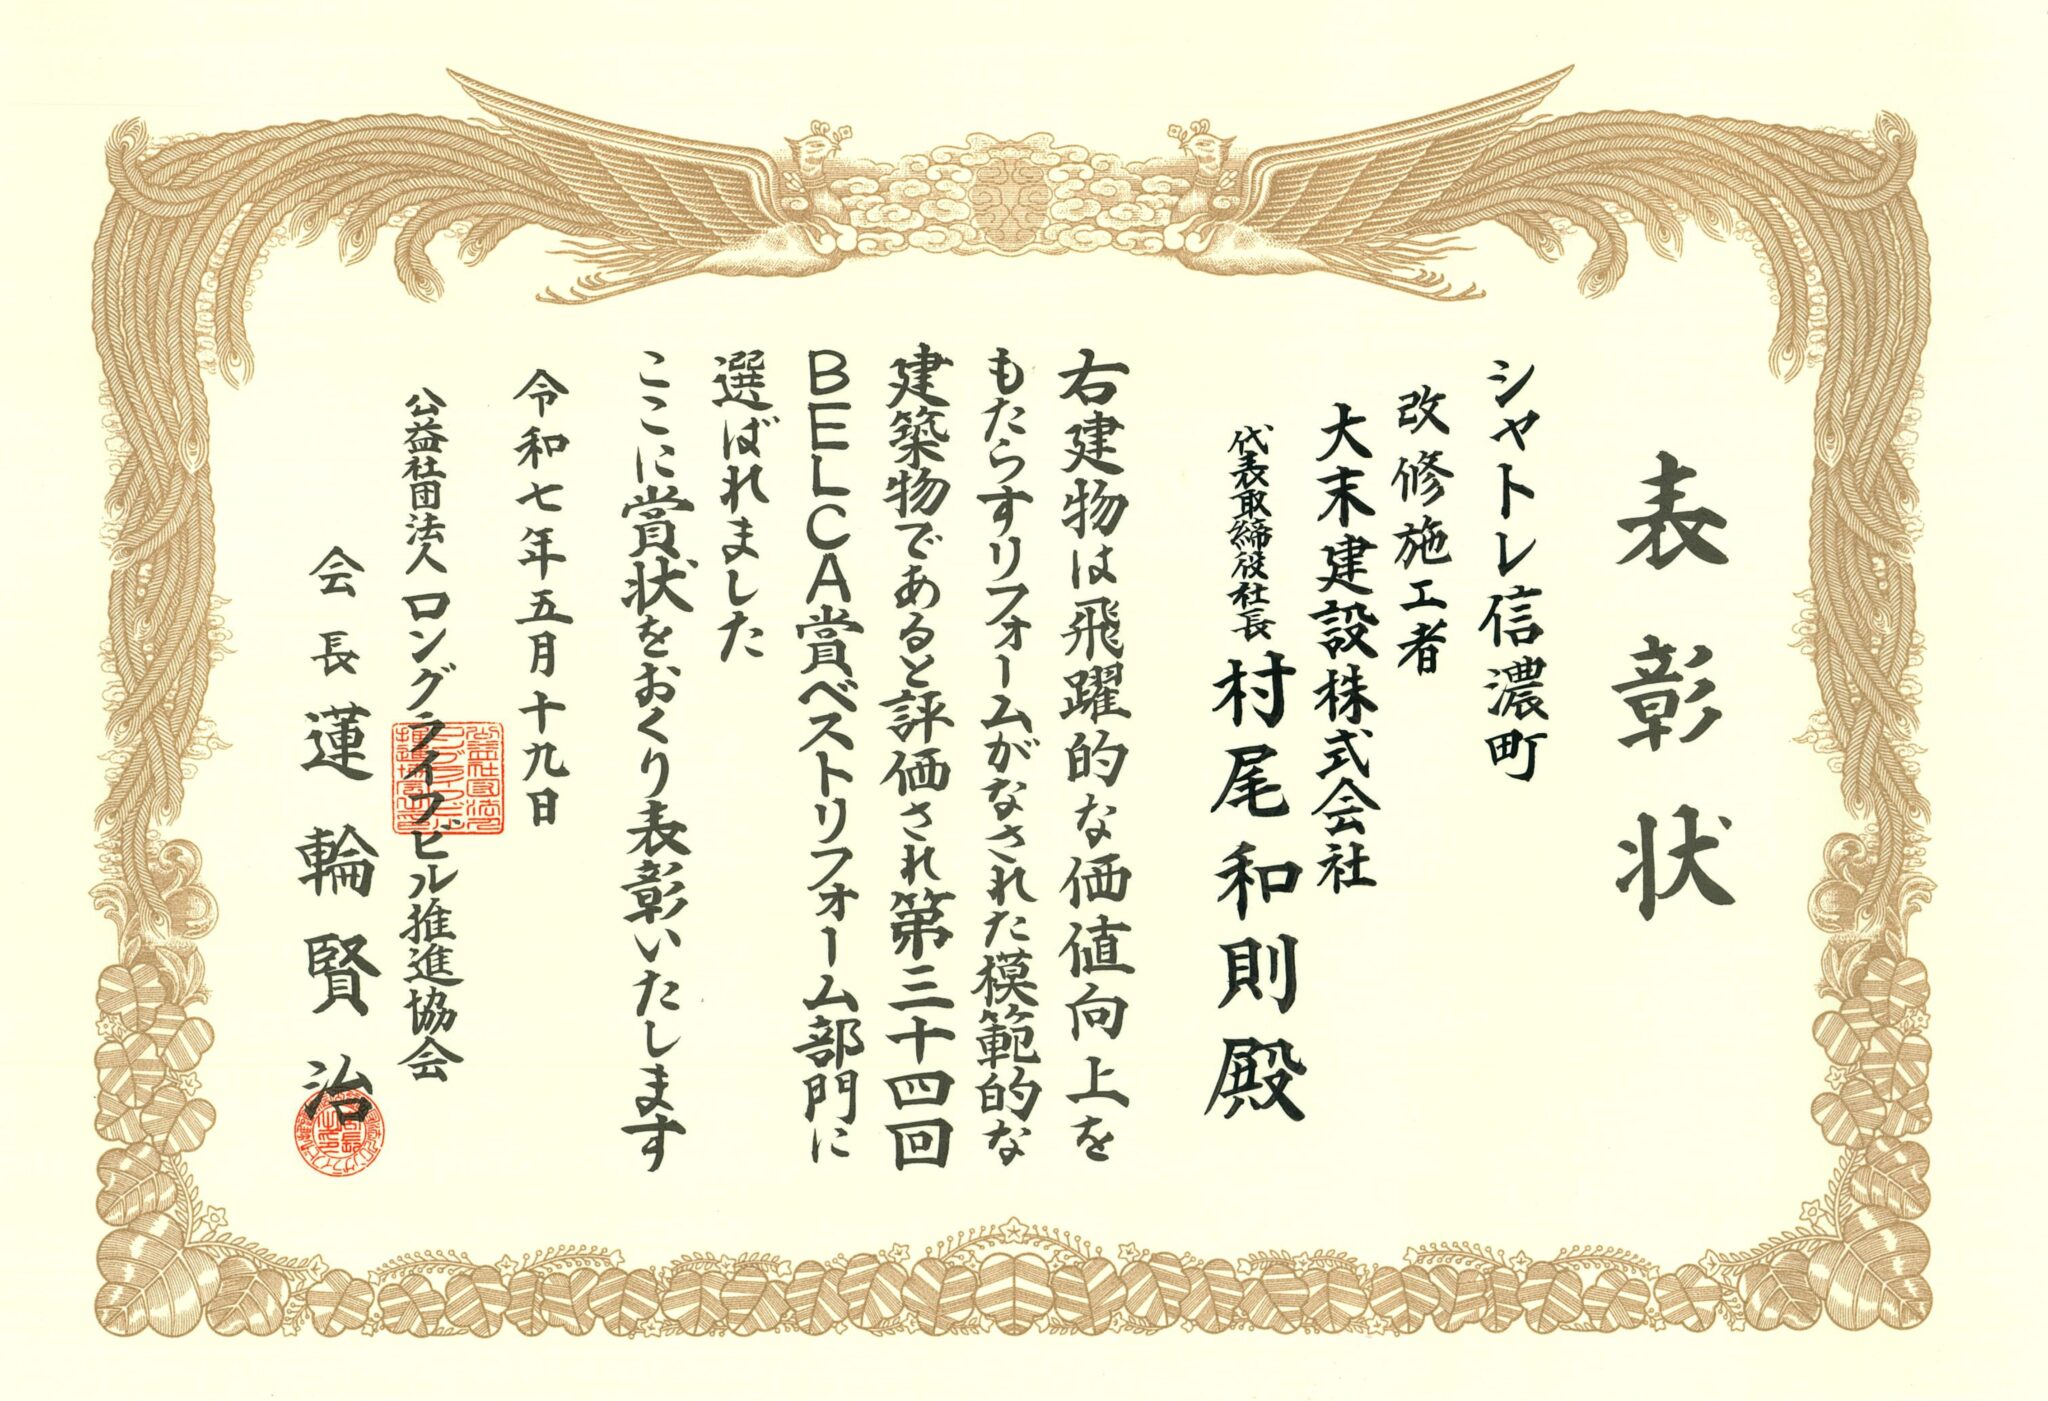 表彰状
シャトレ信濃町
改修施工者
大末建設株式会社
代表取締役社長 村尾和則殿
右建物は飛躍的な価値向上を
もたらすリフォームがなされた模範的な
建築物であると評価され第三十四回
BELCA賞ベストリフォーム部門に
選ばれました
ここに賞状をおくり表彰いたします
令和七年五月十九日
公益社団法人ロングライフビル推進協会
会長 蓮輪賢治